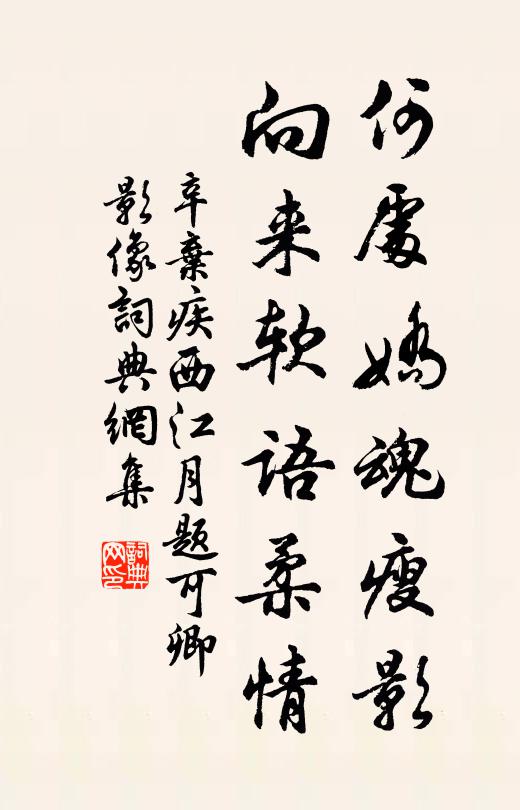 何處嬌魂瘦影
向来软語柔情
辛棄疾西江月题可卿
影像詞典網集
詞典网印